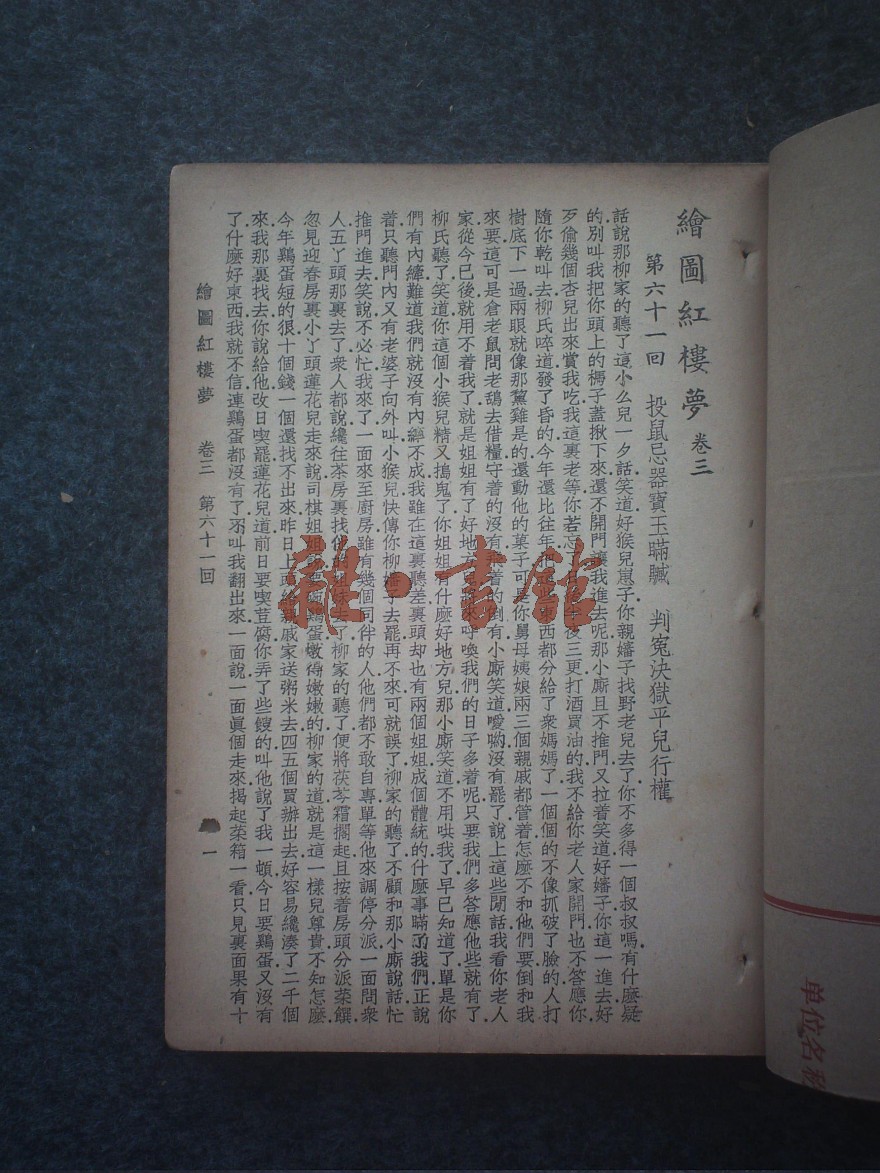 繪圖紅樓夢 卷三
第六十一回 投鼠忌器寶玉瞞贜 判冤決獄平兒行權
話說那柳家的聽了這小么兒一夕話笑道好猴兒崽子你親嬸子找野老兒去了你不多得一個叔叔嗎有什麼疑
的別叫我把你頭上的榪子蓋揪下來還不開門讓我進去呢那小廝且不推門又拉着笑道好嬸子你這一進去好
歹偷幾個杏兒出來賞我吃我這裏老等你若忘 後三更打酒買油的我不給你老人家開門也不答應你
隨你乾叫去柳氏啐道發了昏的今年還比往年 西都分給了衆媽媽了一個個的不像抓破了臉的人打
樹底下一過兩眼就像那黧雞是的還動他的菓子可 你舅母姨娘兩三個親戚都管着怎麼不和他們要倒和我
來要這可是倉老鼠問老鴰去借糧守着的沒有 着的倒有小廝笑道噯喲沒有罷了說上這些閒話我看你老人
家從今已後就用不着我了就是姐姐有了好地 呼喚我們的日子多着呢只要我們多答應他些就有了
柳氏聽了笑道你這個小猴兒精又搗鬼了你姐姐有什麼好地方兒那小廝笑道不用哄我了早已知道了單是你
們有內縴難道我們就沒有內縴不成我雖在這裏聽差裏頭却也有兩個姐姐成個體統的什麼事瞞了我們正說
着只聽門內又有老婆子向外叫小猴兒快傳你柳嬸子去罷再不來可就誤了柳家的聽了不顧和那小廝說話忙
推門進去笑說不必忙我來了一面來至廚房雖有幾個同伴的人他們都不敢自專單等他來調停分派一面問衆
人五丫頭那裏去了衆人都說纔往茶房裏找 姐妹去了柳家的聽了便將茯苓霜擱起且按着房頭分派菜饌
忽見迎春房裏小丫頭蓮花兒走來說司棋姐姐 要碗鷄蛋燉得嫩嫩的柳家的道就是這一樣兒尊貴不知怎麽
今年鷄蛋短的很十個錢一個還找不出來昨日上頭給親戚家送粥米去四五個買辦出去好容易纔湊了二千個
來我那裏找去你說給他改日喫罷蓮花兒道前日要喫荳腐你弄了些餿的叫他說了我一頓今日要鷄蛋又沒有
了什麽好東西我就不信連鷄蛋都沒有了別叫我翻出來一面說一面眞個走來揭起菜箱一看只見裏面果有十
繪圖紅樓夢 卷三 第六十一回 一
雜·書館
单位名称